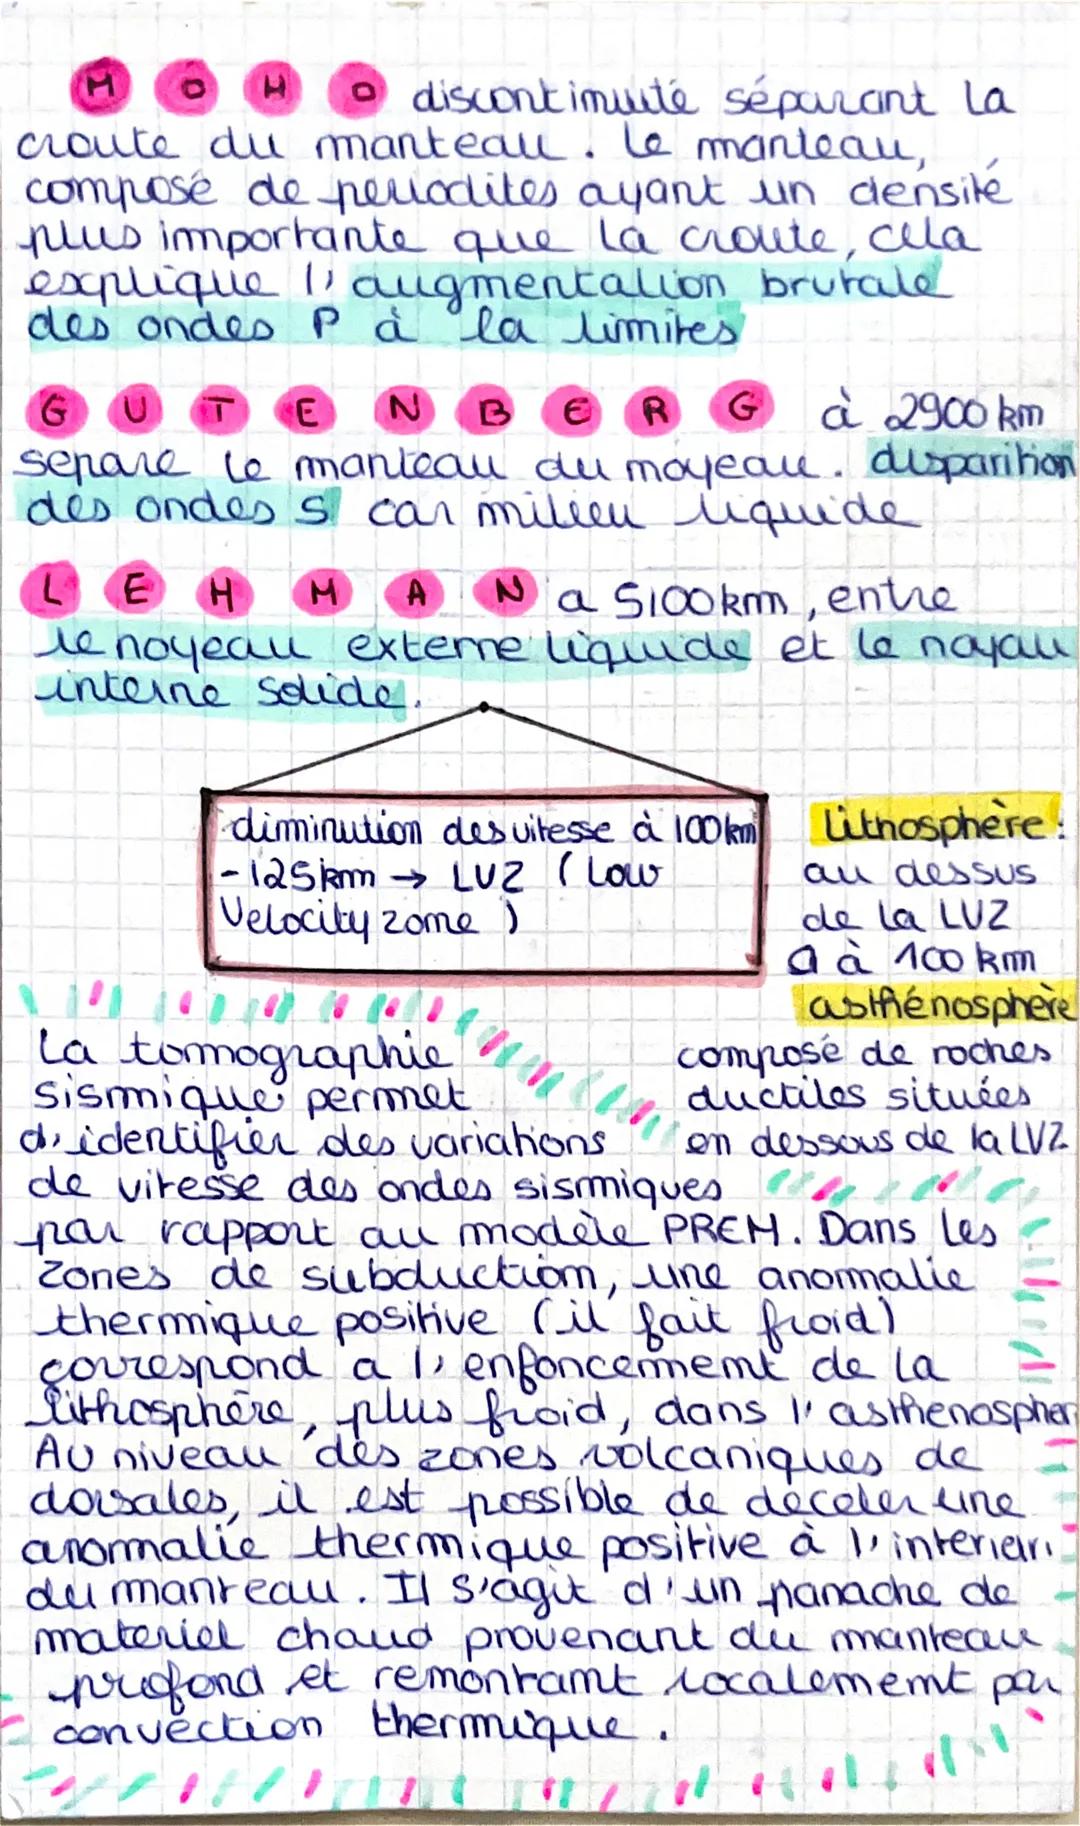 MOHO discontinuité séparant la
croute du manteau. Le manteau,
composé de periodites ayant un densité
plus importante que la croute, cela
explique l'augmentation brutale
des ondes P à la limites
GUTENBERG à 2900 km
separe le manteau du noyeau. disparition
des ondes S car milieu liquide
LEHMAN a 5100km, entre
le noyeau externe liquide et le noyau
interne solide.
diminution des vitesse à 100km
-125km → LVZ (Low
Velocity zone)
Lithosphère:
au dessus
de la LVZ
0 à 100 km
asthénosphère
composé de roches
ductiles situées
en dessous de la LVZ
La tomographie
sismique permet
d'identifier des variations
de vitesse des ondes sismiques
par rapport au modèle PREM. Dans les
zones de subduction, une anomalie
thermique positive (il fait froid)
correspond a l'enfoncement de la
lithosphère, plus froid, dans l'asthenospher
Au niveau des zones volcaniques de
dorsales, il est possible de deceler une
anomalie thermique positive à l'interieur
du manteau. Il s'agit d'un panache de
materiel chaud provenant du manteau
profond et remontant localement par
convection thermique.